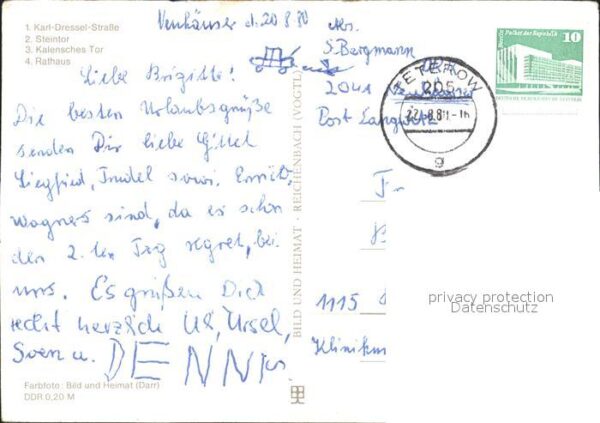 1. Karl-Dressel-Straße
2. Steintor
3. Kalensches Tor
4. Rathaus
Neuhäuser d. 20.8.80
Liebe Brigitte!
Die besten Urlaubsgrüße
senden Dir liebe Gittel
Siegfried, Trudel sowi.
Wagners sind, da es schon
den 2. ten Tag regnet, bei
uns. Es grüßen Dich
recht herzlich Uli, Ursel,
Sven u. DENNis.
Farbfoto: Bild und Heimat (Darr)
DDR 0,20 M
BILD UND HEIMAT · REICHENBACH (VOGTL)
Abs.
S. Bergmann
2041
Post
TETEROW
205
g
10
Berlin, Palast der Republik
DEUTSCHE DEMOKRATISCHE REPUBLIK
1115
Klinikum
privacy protection
Datenschutz